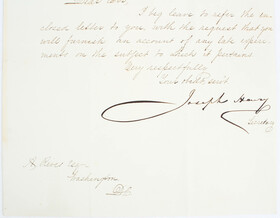 Dear Sir
I beg leave to refer the en-
closed letter to you with the request that you
will furnish an account of any late experi-
ments on the subject to which it pertains
Very respectfully
Your obdt servt
Joseph Henry
Secretary
Esqr
Washington
D.C.